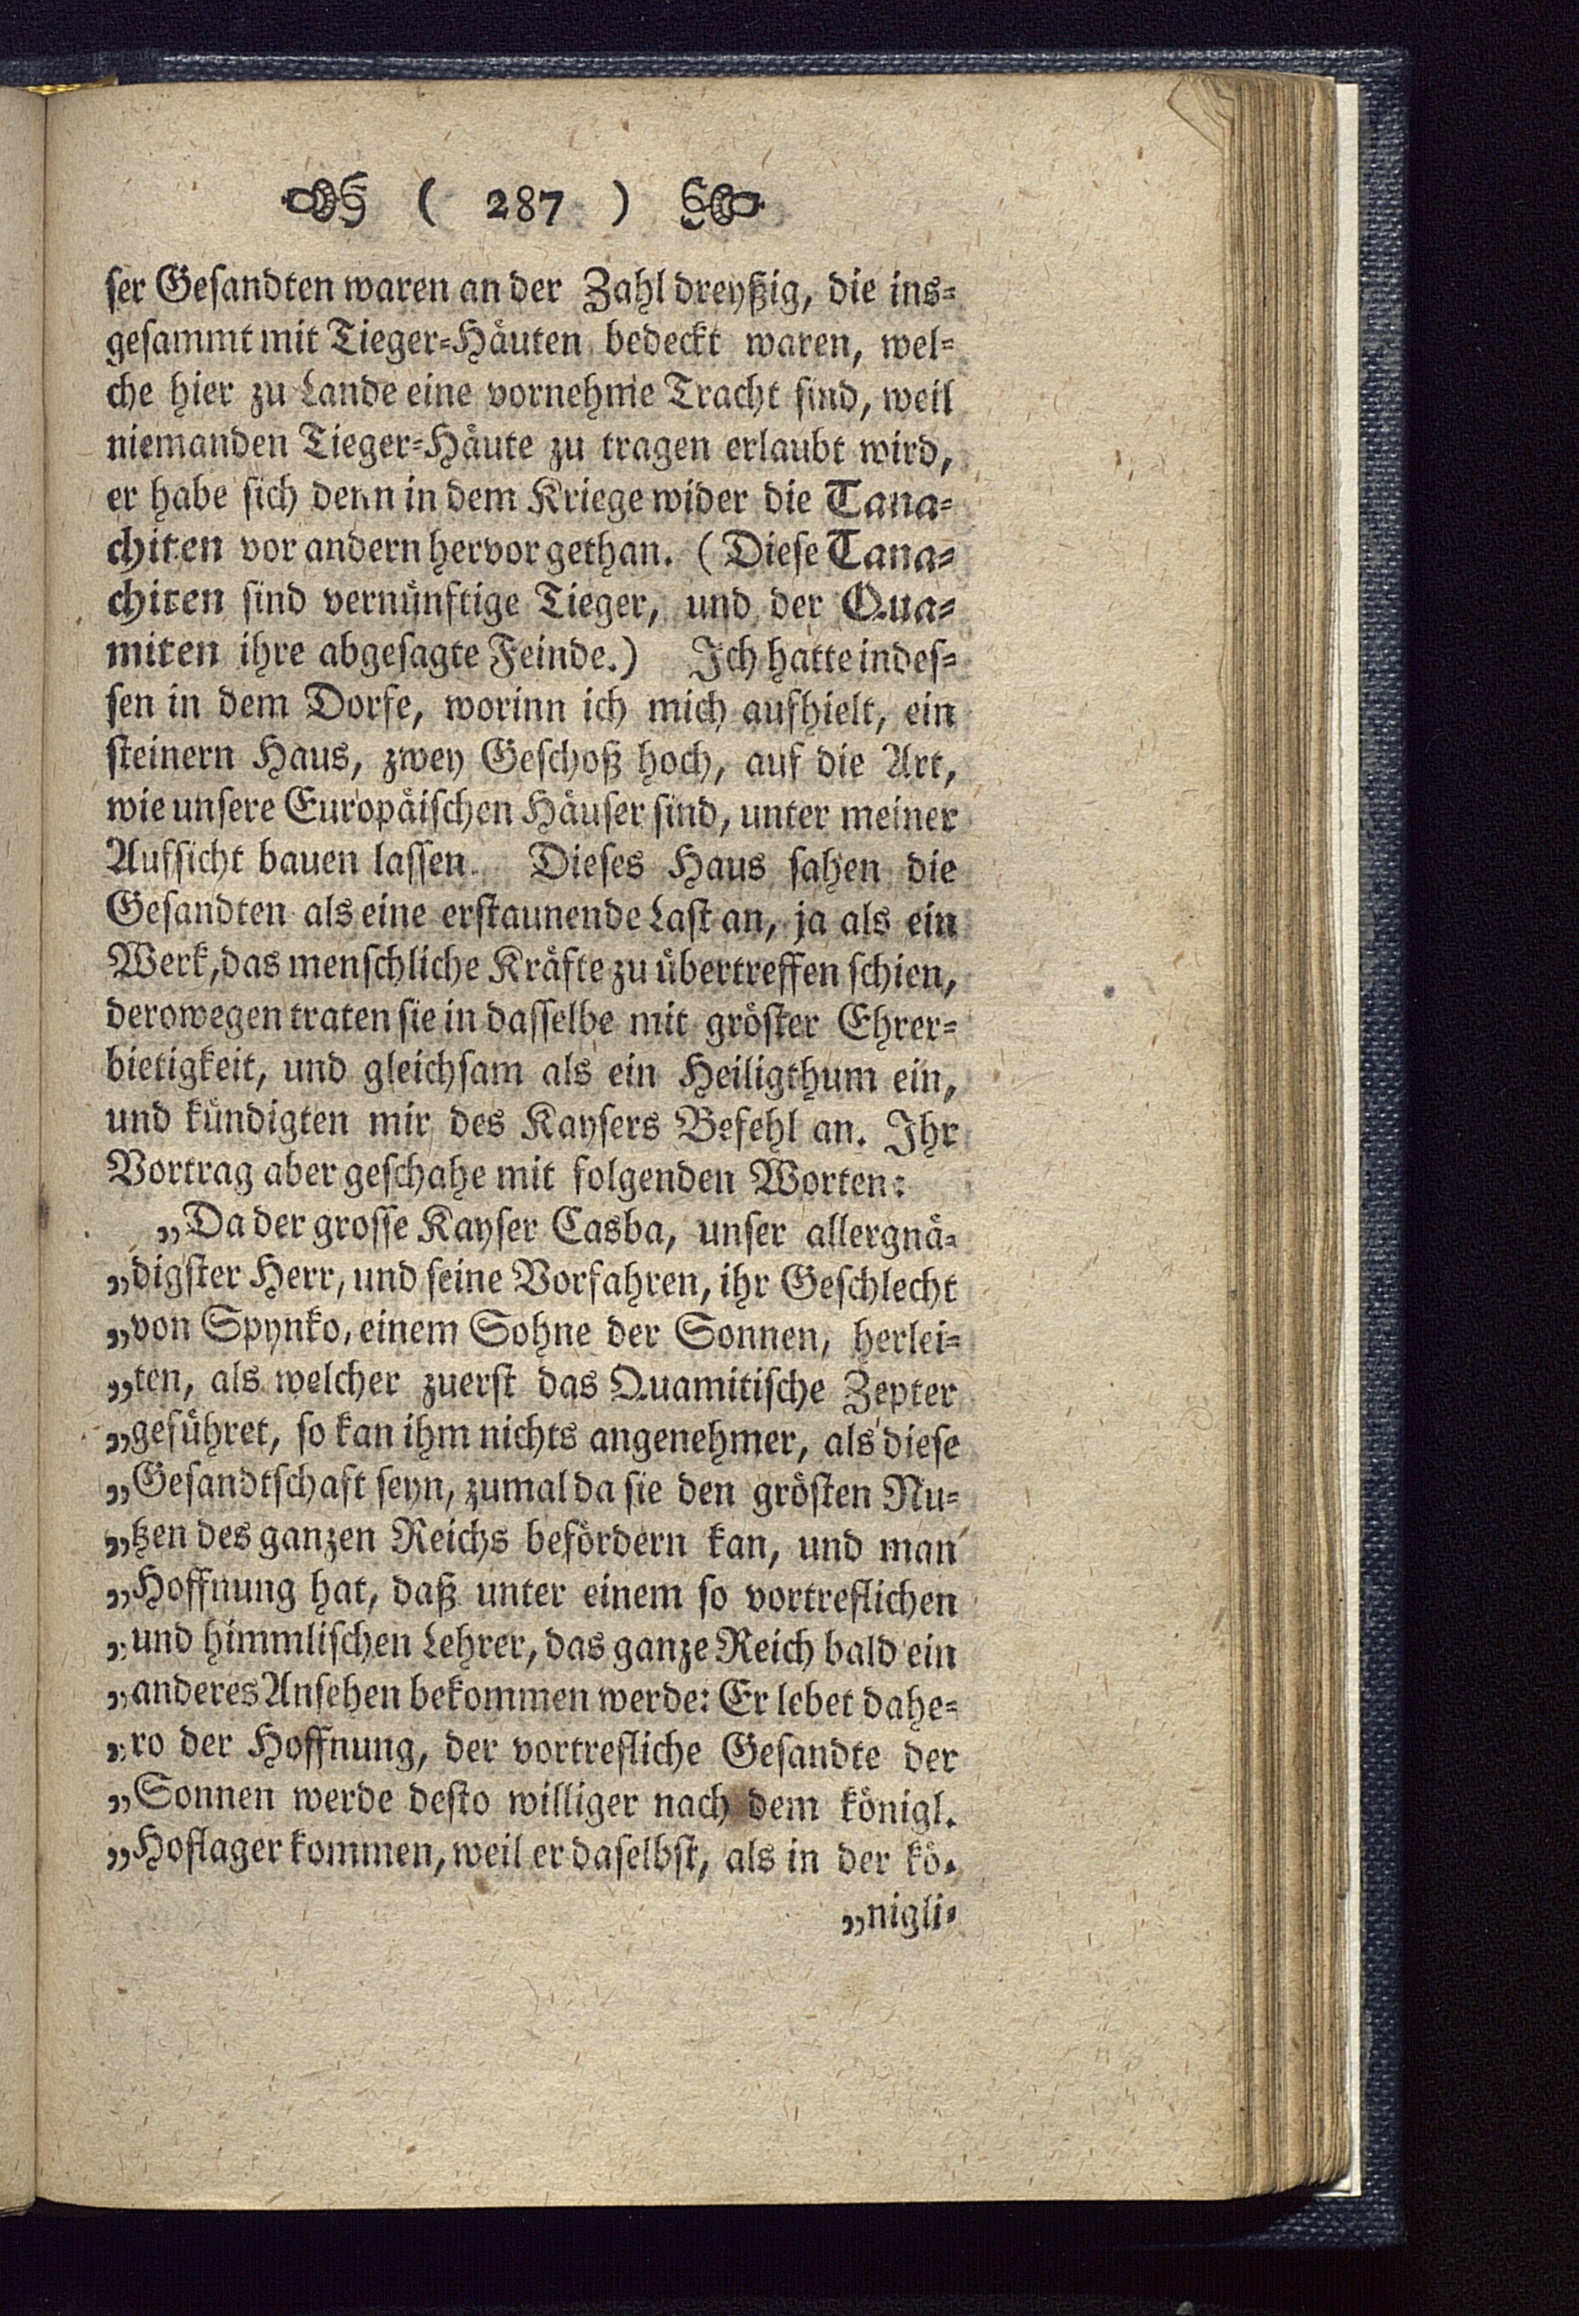 ( 287 )
ser Gesandten waren an der Zahl dreyßig, die ins-
gesammt mit Tieger-Häuten bedeckt waren, wel-
che hier zu Lande eine vornehme Tracht sind, weil
niemanden Tieger-Häute zu tragen erlaubt wird,
er habe sich denn in dem Kriege wider die Tana-
chiten vor andern hervor gethan. (Diese Tana-
chiten sind vernünftige Tieger, und der Qua-
miten ihre abgesagte Feinde.) Ich hatte indes-
sen in dem Dorfe, worinn ich mich aufhielt, ein
steinern Haus, zwey Geschoß hoch, auf die Art,
wie unsere Europäischen Häuser sind, unter meiner
Aufsicht bauen lassen. Dieses Haus sahen die
Gesandten als eine erstaunende Last an, ja als ein
Werk, das menschliche Kräfte zu übertreffen schien,
derowegen traten sie in dasselbe mit gröster Ehrer-
bietigkeit, und gleichsam als ein Heiligthum ein,
und kündigten mir des Kaysers Befehl an. Ihr
Vortrag aber geschahe mit folgenden Worten:
„Da der grosse Kayser Casba, unser allergnä-
„digster Herr, und seine Vorfahren, ihr Geschlecht
„von Spynko, einem Sohne der Sonnen, herlei-
„ten, als welcher zuerst das Quamitische Zepter
„geführet, so kan ihm nichts angenehmer, als diese
„Gesandtschaft seyn, zumal da sie den grösten Nu-
„tzen des ganzen Reichs befördern kan, und man
„Hoffnung hat, daß unter einem so vortreflichen
„und himmlischen Lehrer, das ganze Reich bald ein
„anderes Ansehen bekommen werde: Er lebet dahe-
„ro der Hoffnung, der vortrefliche Gesandte der
„Sonnen werde desto williger nach dem königl.
„Hoflager kommen, weil er daselbst, als in der kö-
„nigli-